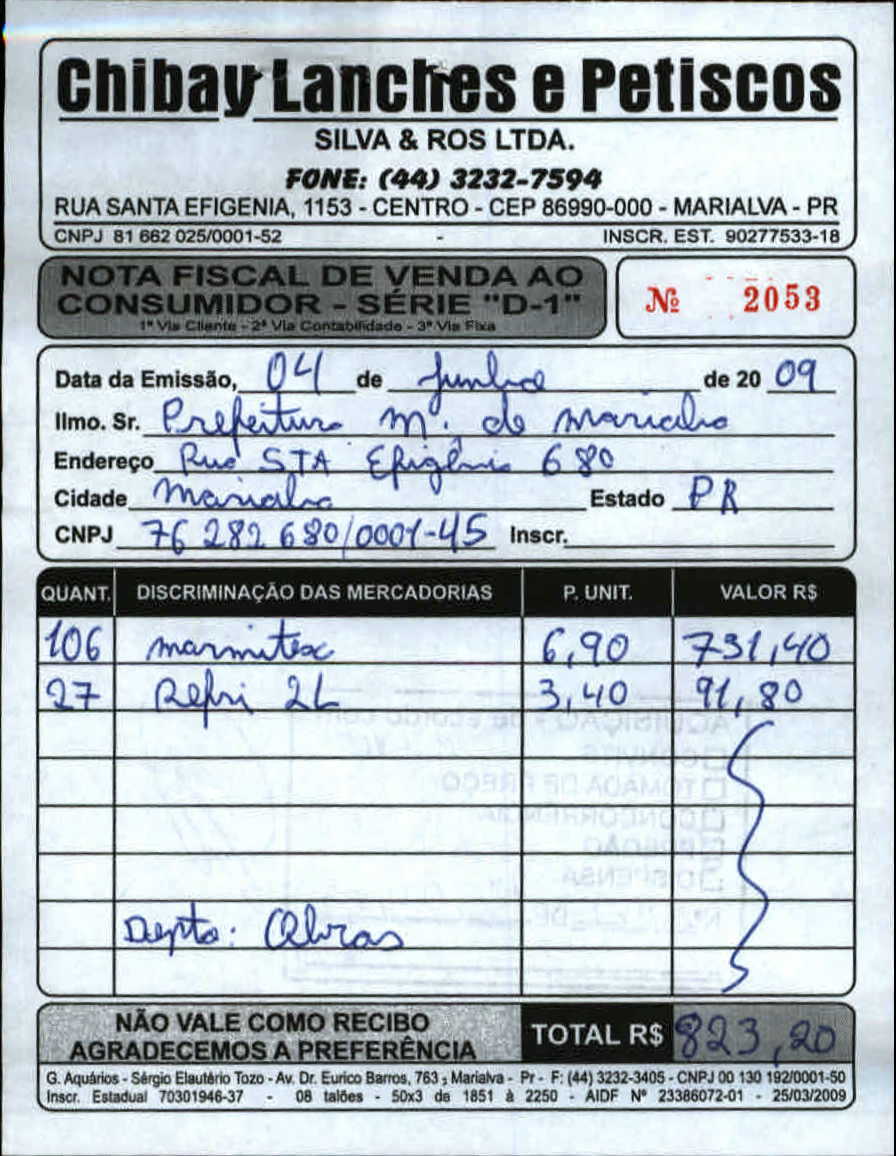 Chibay Lanches e Petiscos
SILVA & ROS LTDA.
FONE: (44) 3232-7594
RUA SANTA EFIGENIA, 1153 - CENTRO - CEP 86990-000 - MARIALVA - PR
CNPJ 81 662 025/0001-52 - INSCR. EST. 90277533-18
NOTA FISCAL DE VENDA AO
CONSUMIDOR - SÉRIE "D-1"
1ª Via Cliente - 2ª Via Contabilidade - 3ª Via Fixa
Nº 2053
Data da Emissão, 04 de Junho de 20 09
Ilmo. Sr. Prefeitura M. de Marialva
Endereço Rua STA Efigênia 680
Cidade Marialva Estado PR
CNPJ 76 282 680/0001-45 Inscr.
QUANT. DISCRIMINAÇÃO DAS MERCADORIAS P. UNIT. VALOR R$
106 marmitex 6,90 731,40
27 Refri 2L 3,40 91,80
AQUISIÇÃO - de acordo com
CONVITE
TOMADA DE PREÇO
CONCORRÊNCIA
PREGÃO
DISPENSA
Depto: Obras
NÃO VALE COMO RECIBO
AGRADECEMOS A PREFERÊNCIA
TOTAL R$ 823,20
G. Aquários - Sérgio Elautério Tozo - Av. Dr. Eurico Barros, 763 - Marialva - Pr - F: (44) 3232-3405 - CNPJ 00 130 192/0001-50
Inscr. Estadual 70301946-37 - 08 talões - 50x3 de 1851 à 2250 - AIDF Nº 23386072-01 - 25/03/2009